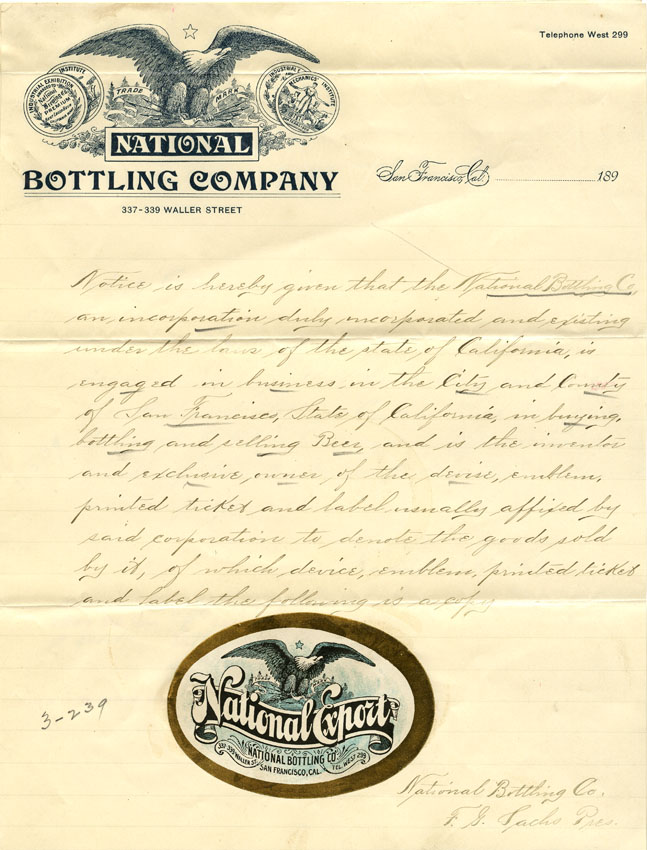 Telephone West 299
INSTITUTE
INDUSTRIAL EXHIBITION
PREMIUM
TRADE MARK
MECHANICS INSTITUTE
NATIONAL
BOTTLING COMPANY
337-339 WALLER STREET
San Francisco, Cal. 189
Notice is hereby given that the National Bottling Co,
an incorporation duly incorporated and existing
under the laws of the state of California, is
engaged in business in the City and County
of San Francisco, State of California, in buying,
bottling and selling Beer, and is the inventor
and exclusive owner of the devise, emblem,
printed ticket and label usually affixed by
said corporation to denote the goods sold
by it, of which device, emblem, printed ticket
and label the following is a copy
National Export
NATIONAL BOTTLING CO.
337-339 WALLER ST. TEL. WEST 299
SAN FRANCISCO, CAL.
3-239
National Bottling Co.
F. G. Sachs Pres.